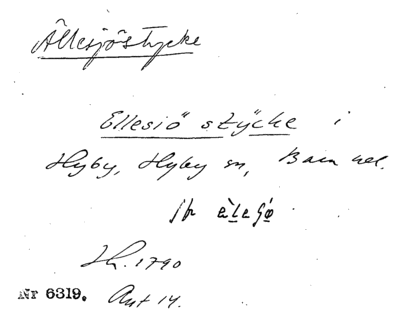 Ällesjöstycke
Ellesiö stÿcke i
Hyby, Hyby sn, Bara hd.
Jfr
Lh. 1790
Nr 6319. Ant 14.